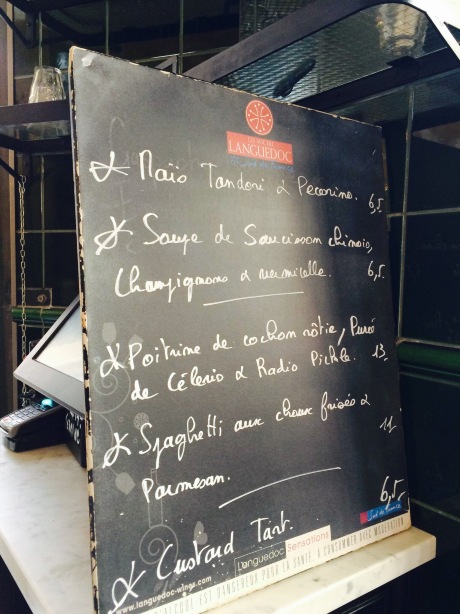 LES VINS DU
LANGUEDOC
Sud de France
Maïs Tandori & Pecorino. 6,5
Soupe de Saucisson chinois,
Champignons & vermicelle. 6,5
Poitrine de cochon rôtie, Purée
de Céleris & Radis Pickle. 13
Spaghetti aux choux frisés &
Parmesan. 11
Custard Tart. 6,5
Sud de France
Languedoc Sensations
www.languedoc-wines.com
L'ABUS D'ALCOOL EST DANGEREUX POUR LA SANTÉ, À CONSOMMER AVEC MODÉRATION